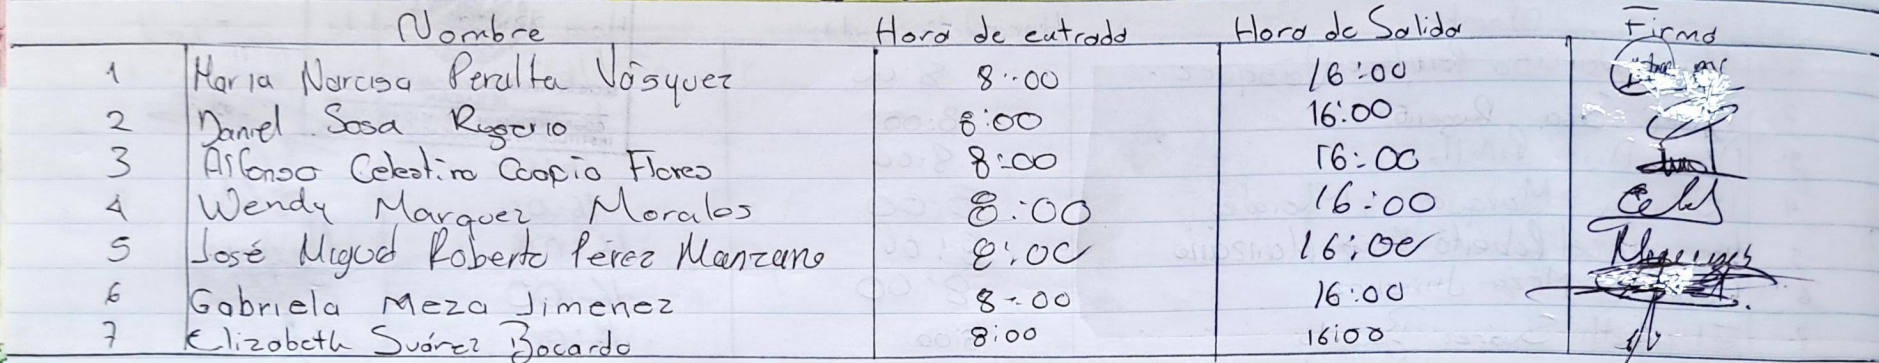 Nombre Hora de entrada Hora de Salida Firma
1 Maria Narcisa Peralta Vásquez 8:00 16:00
2 Daniel Sosa Rogerio 8:00 16:00
3 Alfonso Celestino Flores 8:00 16:00
4 Wendy Marquez Morales 8:00 16:00
5 José Miguel Roberto Pérez Manzano 8:00 16:00
6 Gabriela Meza Jimenez 8:00 16:00
7 Elizabeth Suárez Bocardo 8:00 16:00